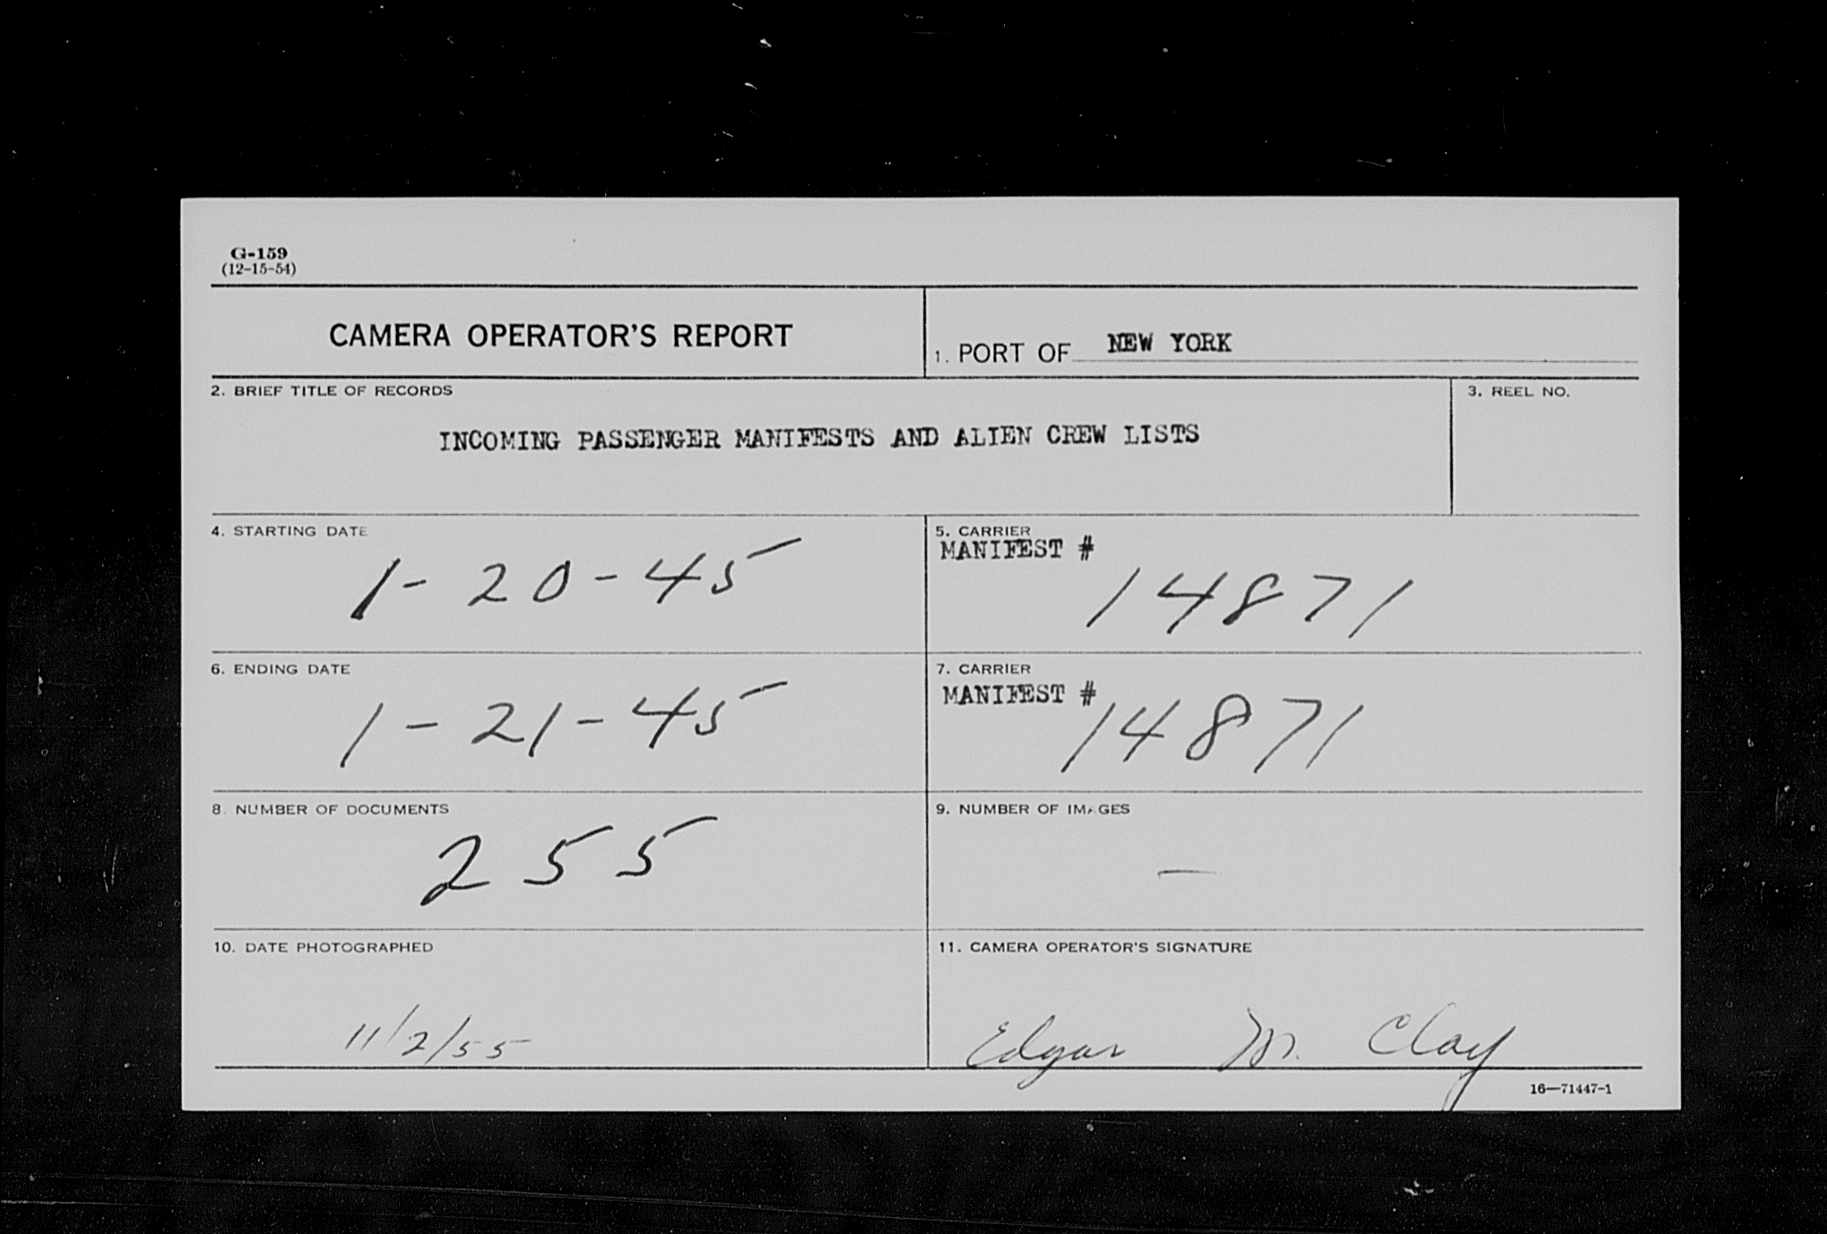 G-159
(12-15-54)
CAMERA OPERATOR'S REPORT
1. PORT OF NEW YORK
2. BRIEF TITLE OF RECORDS
INCOMING PASSENGER MANIFESTS AND ALIEN CREW LISTS
3. REEL NO.
4. STARTING DATE
1-20-45
5. CARRIER
MANIFEST #
14871
6. ENDING DATE
1-21-45
7. CARRIER
MANIFEST #
14871
8. NUMBER OF DOCUMENTS
255
9. NUMBER OF IMAGES
—
10. DATE PHOTOGRAPHED
11/2/55
11. CAMERA OPERATOR'S SIGNATURE
Edgar M. Clay
16—71447-1